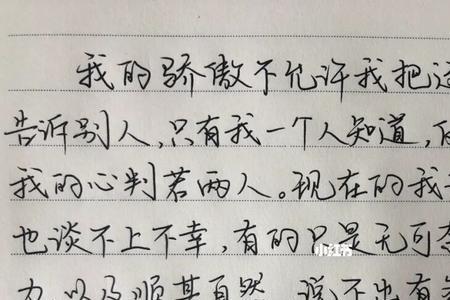 我的骄傲不允许我把这
告诉别人,只有我一个人知道,
我的心判若两人。现在的我
也谈不上不幸,有的只是无可
力以及顺其自然 说不出有
小红书